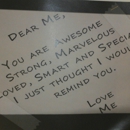 Dear Me,
You are Awesome
Strong, Marvelous
Loved, Smart and Special
I just thought I would
remind you.
Love
Me